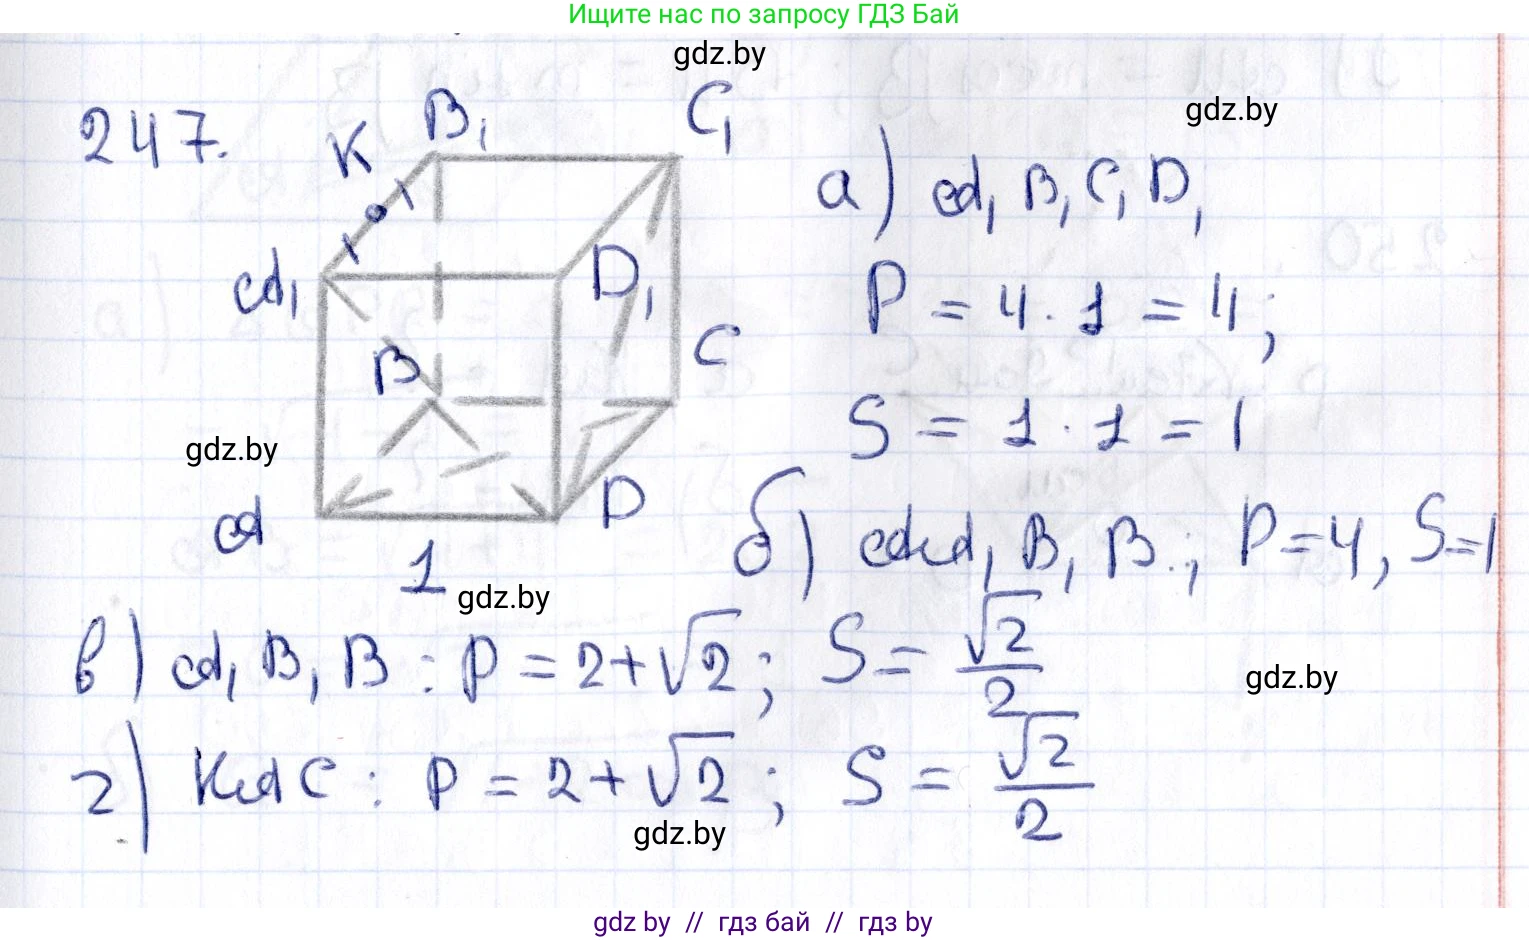 Ищите нас по запросу ГДЗ Бай
gdz.by
gdz.by
247.
K B₁ C₁
а) A₁B₁C₁D₁
A₁ D₁
P = 4 · 1 = 4;
B C
S = 1 · 1 = 1
gdz.by
A D
1
б) AA₁B₁B; P=4, S=1
gdz.by
в) A₁B₁B: P = 2+√2; S = √2/2
gdz.by
г) KAC: P = 2+√2; S = √2/2
gdz.by
gdz by // гдз бай // гдз by